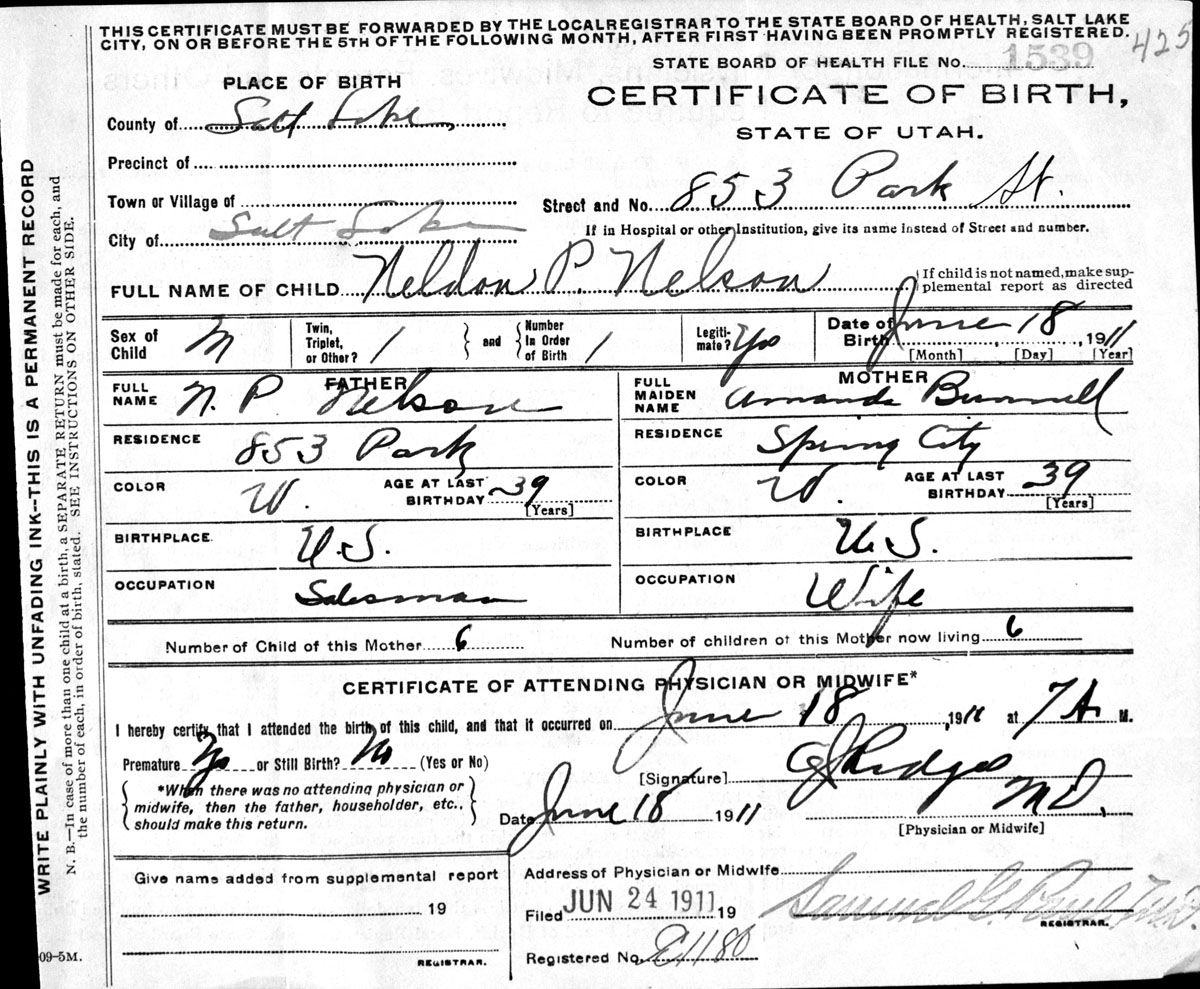 THIS CERTIFICATE MUST BE FORWARDED BY THE LOCAL REGISTRAR TO THE STATE BOARD OF HEALTH, SALT LAKE
CITY, ON OR BEFORE THE 5TH OF THE FOLLOWING MONTH, AFTER FIRST HAVING BEEN PROMPTLY REGISTERED.
425
STATE BOARD OF HEALTH FILE No. 1539
PLACE OF BIRTH
CERTIFICATE OF BIRTH,
County of Salt Lake
STATE OF UTAH.
Precinct of
Town or Village of
Street and No. 853 Park St.
City of Salt Lake
If in Hospital or other Institution, give its name instead of Street and number.
FULL NAME OF CHILD Neldon P. Nelson
If child is not named, make sup-
plemental report as directed
Sex of Child M
Twin, Triplet, or Other? 1 and Number In Order of Birth 1
Legiti-mate? Yes
Date of Birth June 18, 1911
[Month] [Day] [Year]
FATHER
FULL NAME N. P. Nelson
RESIDENCE 853 Park
COLOR W. AGE AT LAST BIRTHDAY 39
[Years]
BIRTHPLACE U.S.
OCCUPATION Salesman
MOTHER
FULL MAIDEN NAME Amanda Bunnell
RESIDENCE Spring City
COLOR W. AGE AT LAST BIRTHDAY 39
[Years]
BIRTHPLACE U.S.
OCCUPATION Wife
Number of Child of this Mother 6 Number of children of this Mother now living 6
CERTIFICATE OF ATTENDING PHYSICIAN OR MIDWIFE*
I hereby certify that I attended the birth of this child, and that it occurred on June 18, 1911 at 7 A. M.
Premature Yes or Still Birth? No (Yes or No)
*When there was no attending physician or
midwife, then the father, householder, etc.,
should make this return.
[Signature] Ridges
M D.
Date June 18 1911
[Physician or Midwife]
Give name added from supplemental report
19
REGISTRAR.
Address of Physician or Midwife
Filed JUN 24 1911 19
Samuel G. Paul
REGISTRAR.
Registered No. E1180
09-5M.
WRITE PLAINLY WITH UNFADING INK--THIS IS A PERMANENT RECORD
N. B.—In case of more than one child at a birth, a SEPARATE RETURN must be made for each, and
the number of each, in order of birth, stated. SEE INSTRUCTIONS ON OTHER SIDE.